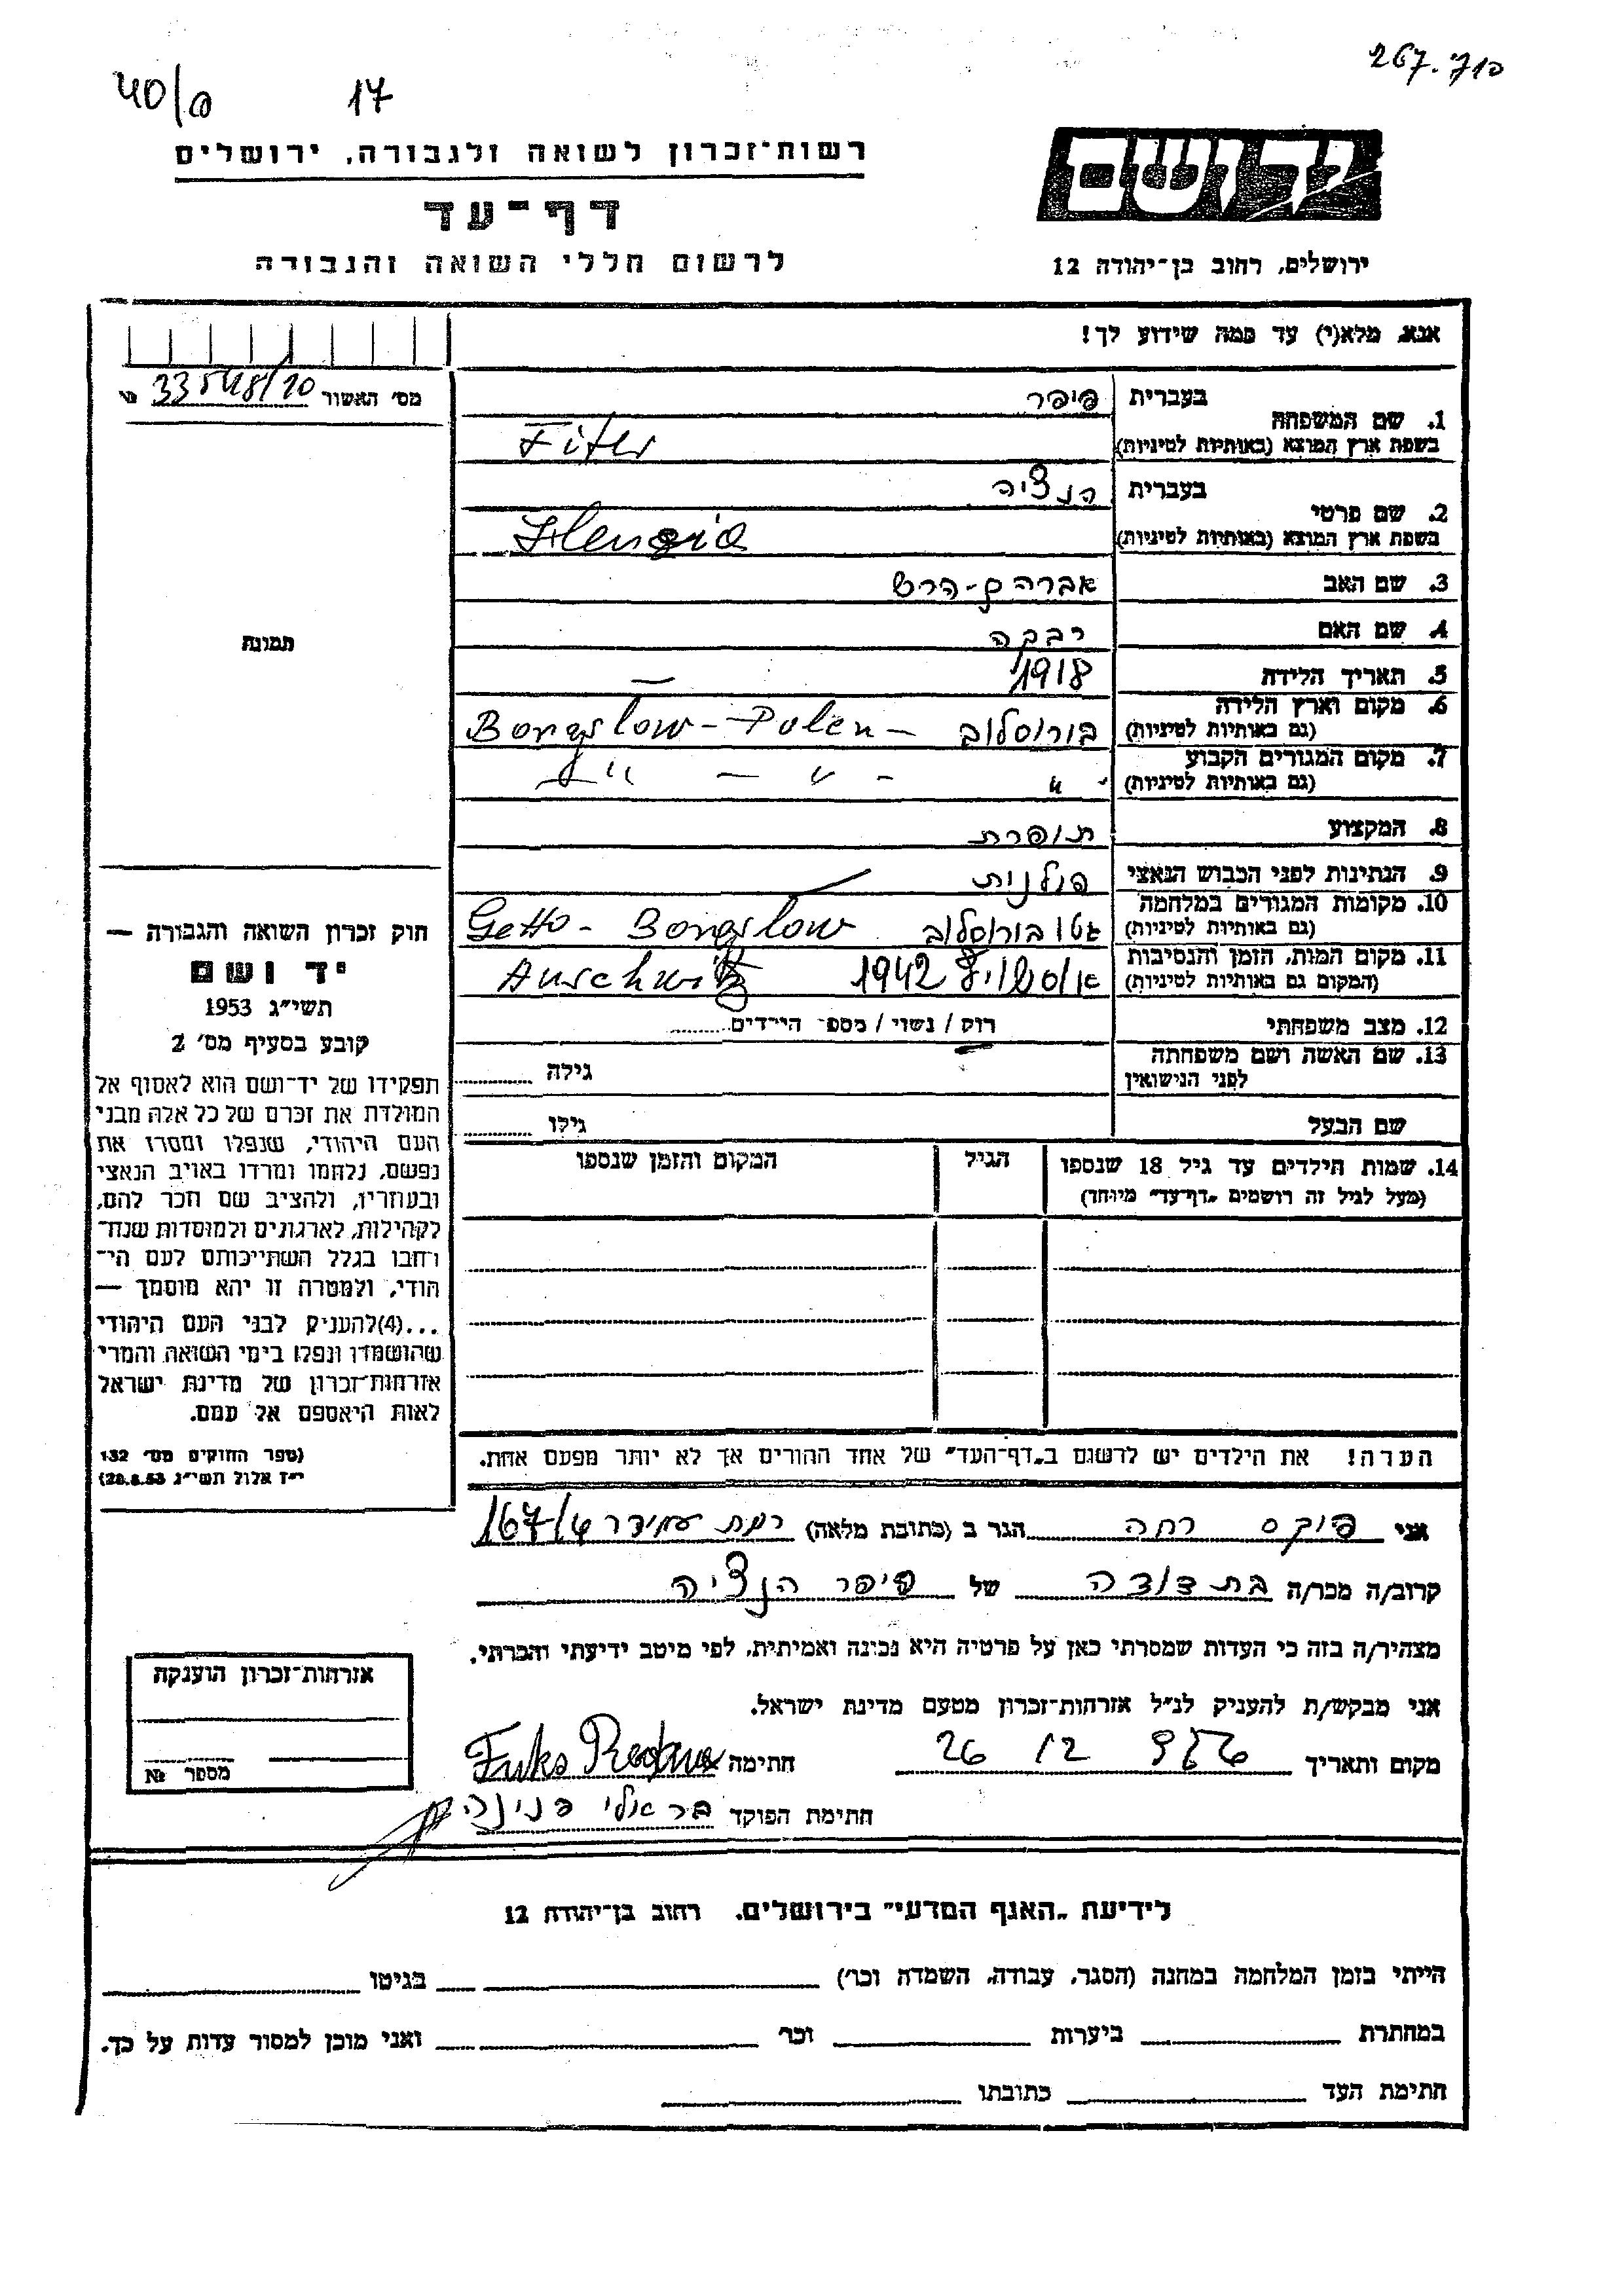 267.710
40/ס 17
יד ושם
רשות־זכרון לשואה ולגבורה, ירושלים
דף־עד
לרשום חללי השואה והגבורה
ירושלים, רחוב בן־יהודה 12
אנא, מלא(י) עד כמה שידוע לך!
מס' האשור
1. שם המשפחה
בעברית פיפר
בשפת ארץ המוצא (באותיות לטיניות) Fifer
2. שם פרטי
בעברית הנציה
בשפת ארץ המוצא (באותיות לטיניות) Henzia
3. שם האב אברהם-הרש
4. שם האם רבקה
5. תאריך הלידה 1918 —
6. מקום וארץ הלידה
(גם באותיות לטיניות) בורוסלוב - Polen -
7. מקום המגורים הקבוע
(גם באותיות לטיניות) " - " - "
8. המקצוע תופרת
9. הנתינות לפני הכבוש הנאצי פולנית
10. מקומות המגורים במלחמה
(גם באותיות לטיניות) גטו בורוסלוב Getto -
11. מקום המות, הזמן והנסיבות
(המקום גם באותיות לטיניות) 1942 Auschwitz
12. מצב משפחתי רוק / נשוי / מספר הילדים
13. שם האשה ושם משפחתה
לפני הנישואין גילה
שם הבעל גילו
14. שמות הילדים עד גיל 18 שנספו הגיל המקום והזמן שנספו
(מעל לגיל זה רושמים "דף־עד" מיוחד)
הערה! את הילדים יש לרשום ב"דף־העד" של אחד ההורים אך לא יותר מפעם אחת.
תמונה
חוק זכרון השואה והגבורה —
יד ושם
תשי"ג 1953
קובע בסעיף מס' 2
תפקידו של יד־ושם הוא לאסוף אל
המולדת את זכרם של כל אלה מבני
העם היהודי, שנפלו ומסרו את
נפשם, נלחמו ומרדו באויב הנאצי
ובעוזריו, ולהציב שם וזכר להם,
לקהילות, לארגונים ולמוסדות שנח־
רחבו בגלל השתייכותם לעם הי־
הודי, ולמטרה זו יהא מוסמך —
...(4)להעניק לבני העם היהודי
שהושמדו ונפלו בימי השואה והמרי
אזרחות־זכרון של מדינת ישראל
לאות היאספם אל עמם.
(ספר החוקים מס' 132
י"ז אלול תשי"ג 28.8.53)
אני פוקס רחה הגר ב (כתובת מלאה) רמת עמידר 167/4
קרוב/ה מכר/ה בת דודה של פיפר הנציה
מצהיר/ה בזה כי העדות שמסרתי כאן על פרטיה היא נכונה ואמיתית, לפי מיטב ידיעתי והכרתי.
אני מבקש/ת להעניק לנ"ל אזרחות־זכרון מטעם מדינת ישראל.
מקום ותאריך 26 12 חתימה Fuks
חתימת הפוקד בר אולי פנינה
אזרחות־זכרון הוענקה
מספר №
לידיעת "האגף המדעי" בירושלים. רחוב בן־יהודה 12
הייתי בזמן המלחמה במחנה (הסגר, עבודה, השמדה וכו') בגיטו
במחתרת ביערות וכו' ואני מוכן למסור עדות על כך.
חתימת העד כתובתו